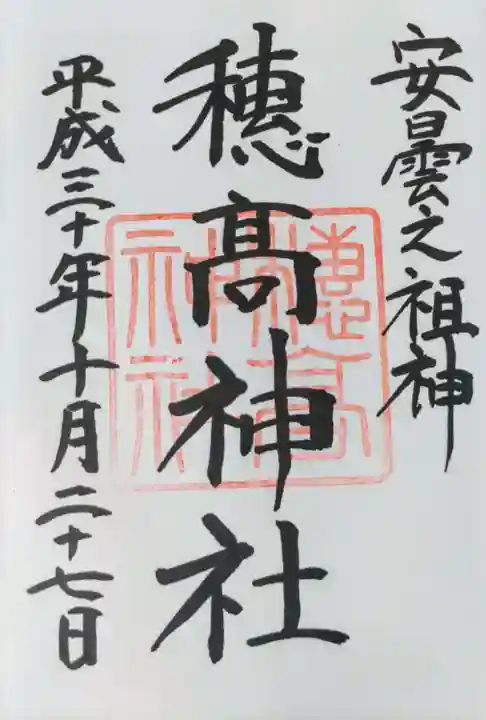 安曇之祖神
穂髙神社
平成三十年十月二十七日
穂高神社